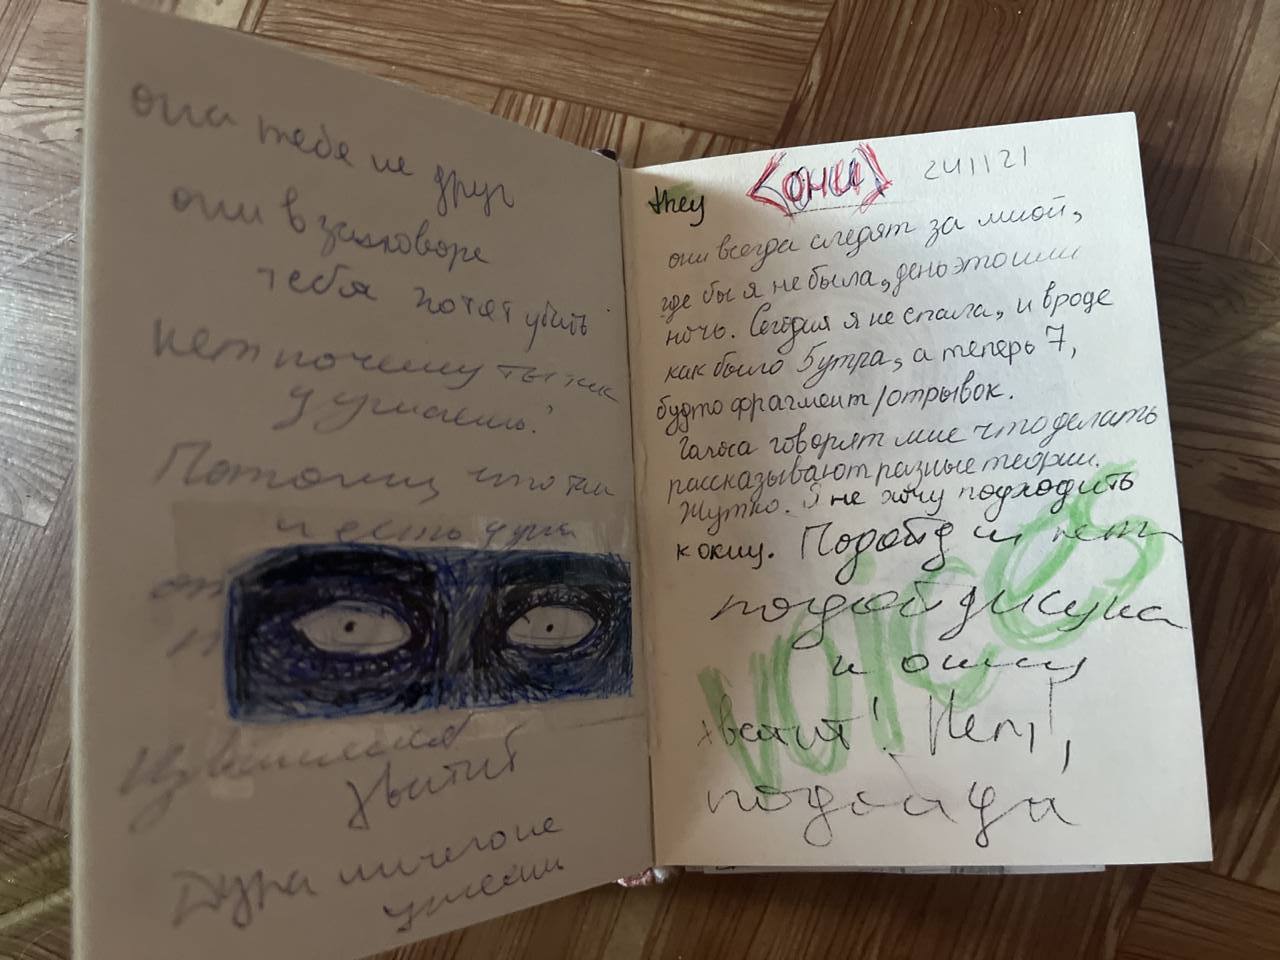 она тебе не друг
они в заговоре
тебя хотят убить
нет почему ты так
думаешь?
Потому что ты
и есть дура
хватит
Дура ничего не
they
<они>
241121
они всегда следят за мной,
где бы я не была, день это или
ночь. Сегодня я не спала, и вроде
как было 5 утра, а теперь 7,
будто фрагмент/отрывок.
Голоса говорят мне что делать
рассказывают разные теории.
Жутко. Я не хочу подходить
к окну. Подойди нет
подойди сука
к окну
хватит! Нет,
подойди
voices